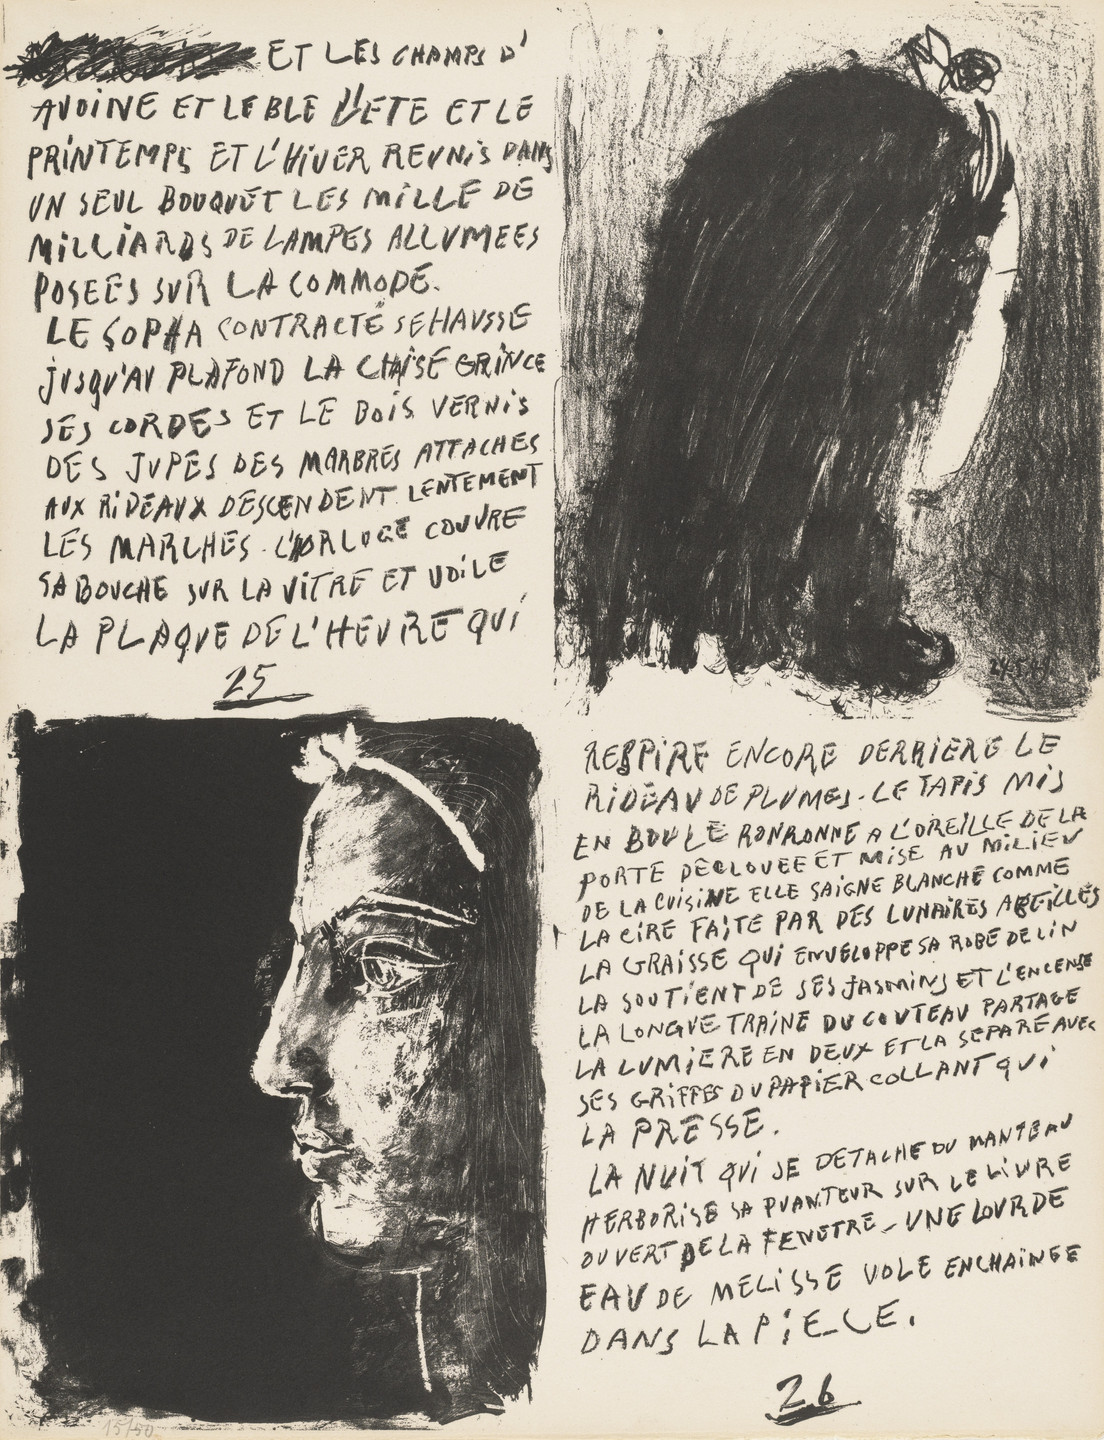 ET LES CHAMPS D'
AVOINE ET LE BLE L'ETE ET LE
PRINTEMPS ET L'HIVER REUNIS DANS
UN SEUL BOUQUET LES MILLE DE
MILLIARDS DE LAMPES ALLUMEES
POSEES SUR LA COMMODE.
LE SOPHA CONTRACTÉ SE HAUSSE
JUSQU'AU PLAFOND LA CHAISE GRINCE
SES CORDES ET LE BOIS VERNIS
DES JUPES DES MARBRES ATTACHES
AUX RIDEAUX DESCENDENT LENTEMENT
LES MARCHES. L'ORLOGE COUVRE
SA BOUCHE SUR LA VITRE ET VOILE
LA PLAQUE DE L'HEURE QUI
25
24.5.49
RESPIRE ENCORE DERRIERE LE
RIDEAU DE PLUMES. LE TAPIS MIS
EN BOULE RONRONNE A L'OREILLE DE LA
PORTE DECLOUEE ET MISE AU MILIEU
DE LA CUISINE ELLE SAIGNE BLANCHE COMME
LA CIRE FAITE PAR DES LUNAIRES ABEILLES
LA GRAISSE QUI ENVELOPPE SA ROBE DE LIN
LA SOUTIENT DE SES JASMINS ET L'ENCENSE
LA LONGUE TRAINE DU COUTEAU PARTAGE
LA LUMIERE EN DEUX ET LA SEPARE AVEC
SES GRIFFES DU PAPIER COLLANT QUI
LA PRESSE.
LA NUIT QUI SE DETACHE DU MANTEAU
HERBORISE SA PUANTEUR SUR LE LIVRE
OUVERT DE LA FENETRE - UNE LOURDE
EAU DE MELISSE VOLE ENCHAINEE
DANS LA PIECE.
26
15/50